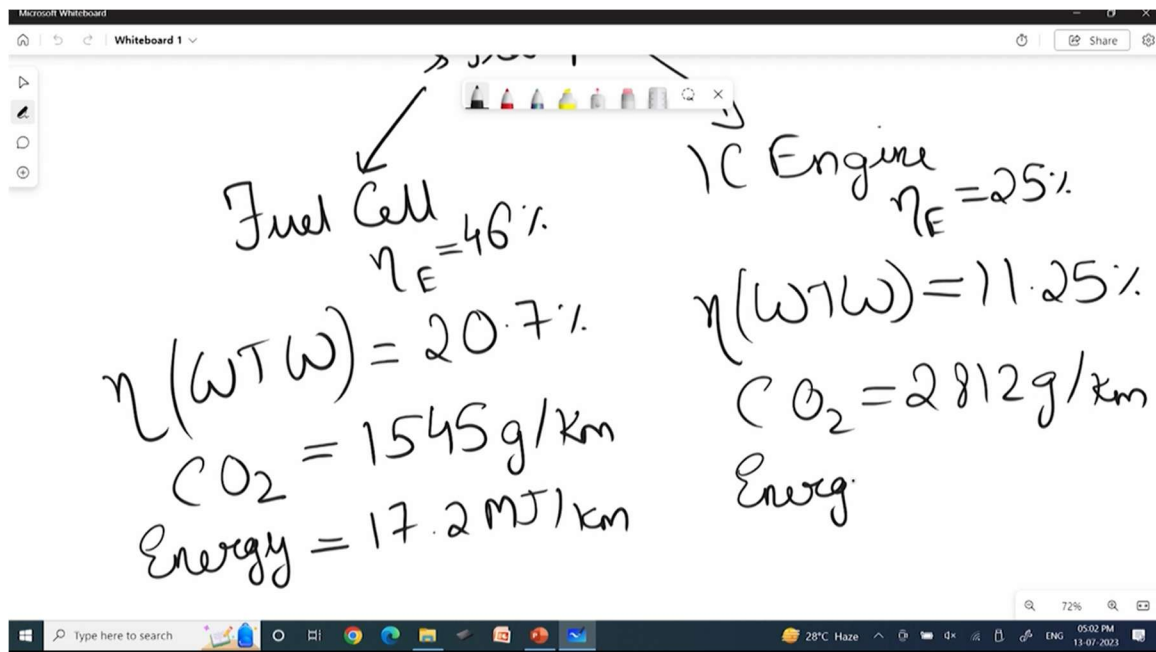 Microsoft Whiteboard
Whiteboard 1
Share
Fuel Cell
η_E = 46%
η(WTW) = 20.7%
CO₂ = 1545 g/km
Energy = 17.2 MJ/km
IC Engine
η_E = 25%
η(WTW) = 11.25%
CO₂ = 2812 g/km
Energ
72%
Type here to search
28°C Haze
ENG
05:02 PM
13-07-2023